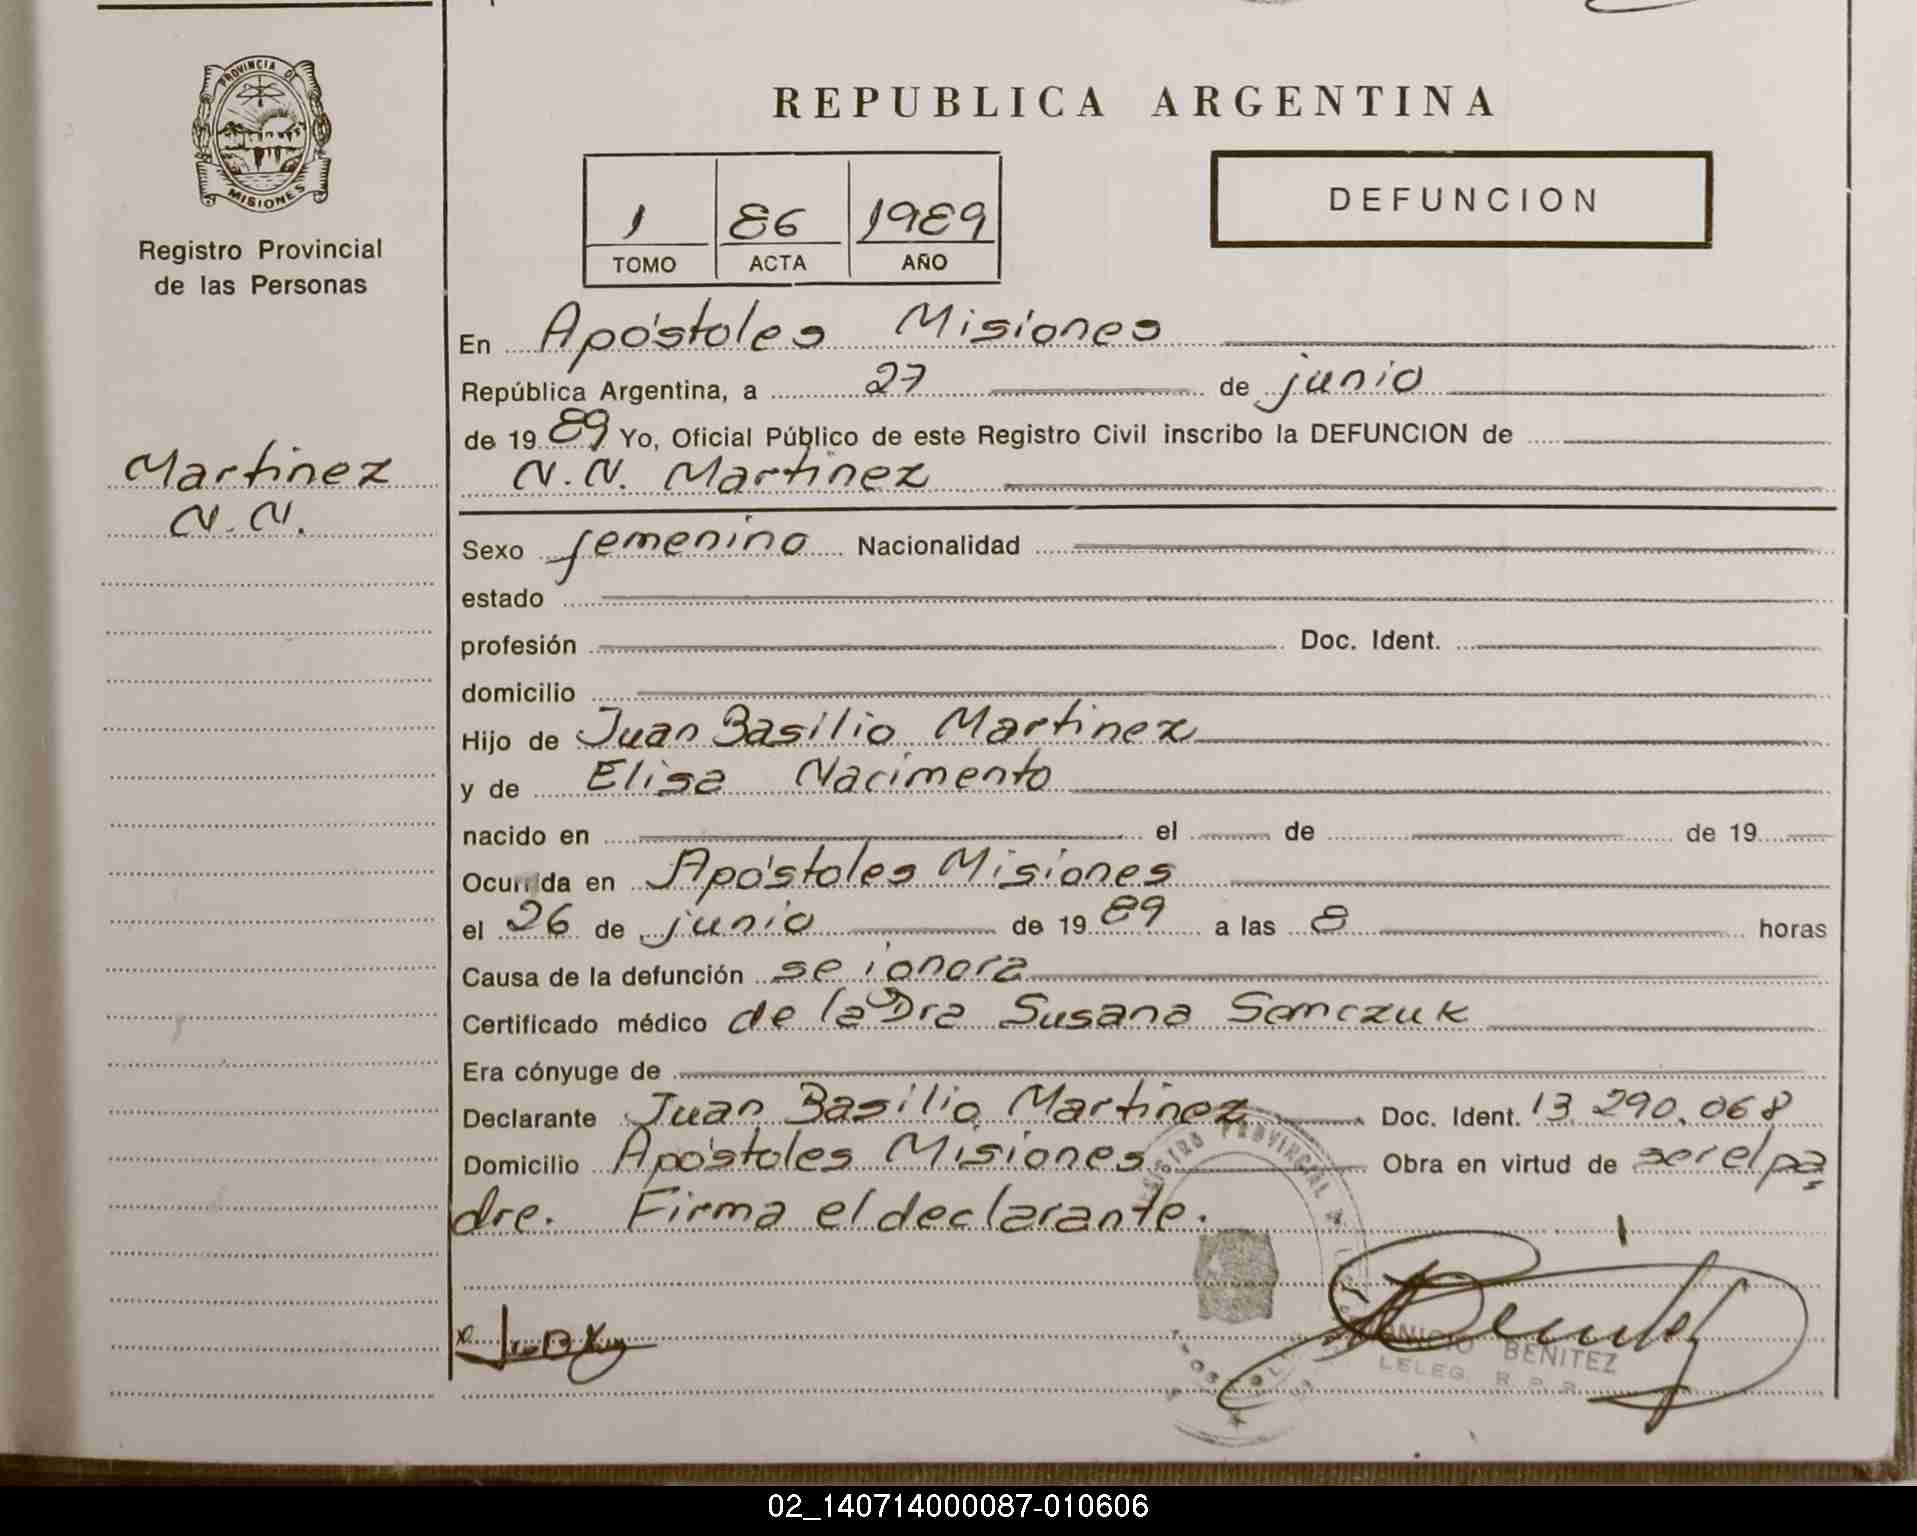 PROVINCIA DE
MISIONES
Registro Provincial
de las Personas
Martinez
N.N.
REPUBLICA ARGENTINA
1 86 1989
TOMO ACTA AÑO
DEFUNCION
En Apóstoles Misiones
República Argentina, a 27 de junio
de 19 89 Yo, Oficial Público de este Registro Civil inscribo la DEFUNCION de
N.N. Martinez
Sexo femenino Nacionalidad
estado
profesión Doc. Ident.
domicilio
Hijo de Juan Basilio Martinez
y de Elisa Nacimento
nacido en el de de 19
Ocurrida en Apóstoles Misiones
el 26 de junio de 19 89 a las 8 horas
Causa de la defunción se ignora
Certificado médico de la Dra Susana Semczuk
Era cónyuge de
Declarante Juan Basilio Martinez Doc. Ident. 13.290.068
Domicilio Apóstoles Misiones Obra en virtud de ser el pa
dre. Firma el declarante.
REGISTRO PROVINCIAL
BENITEZ
R.P.P.
02_140714000087-010606